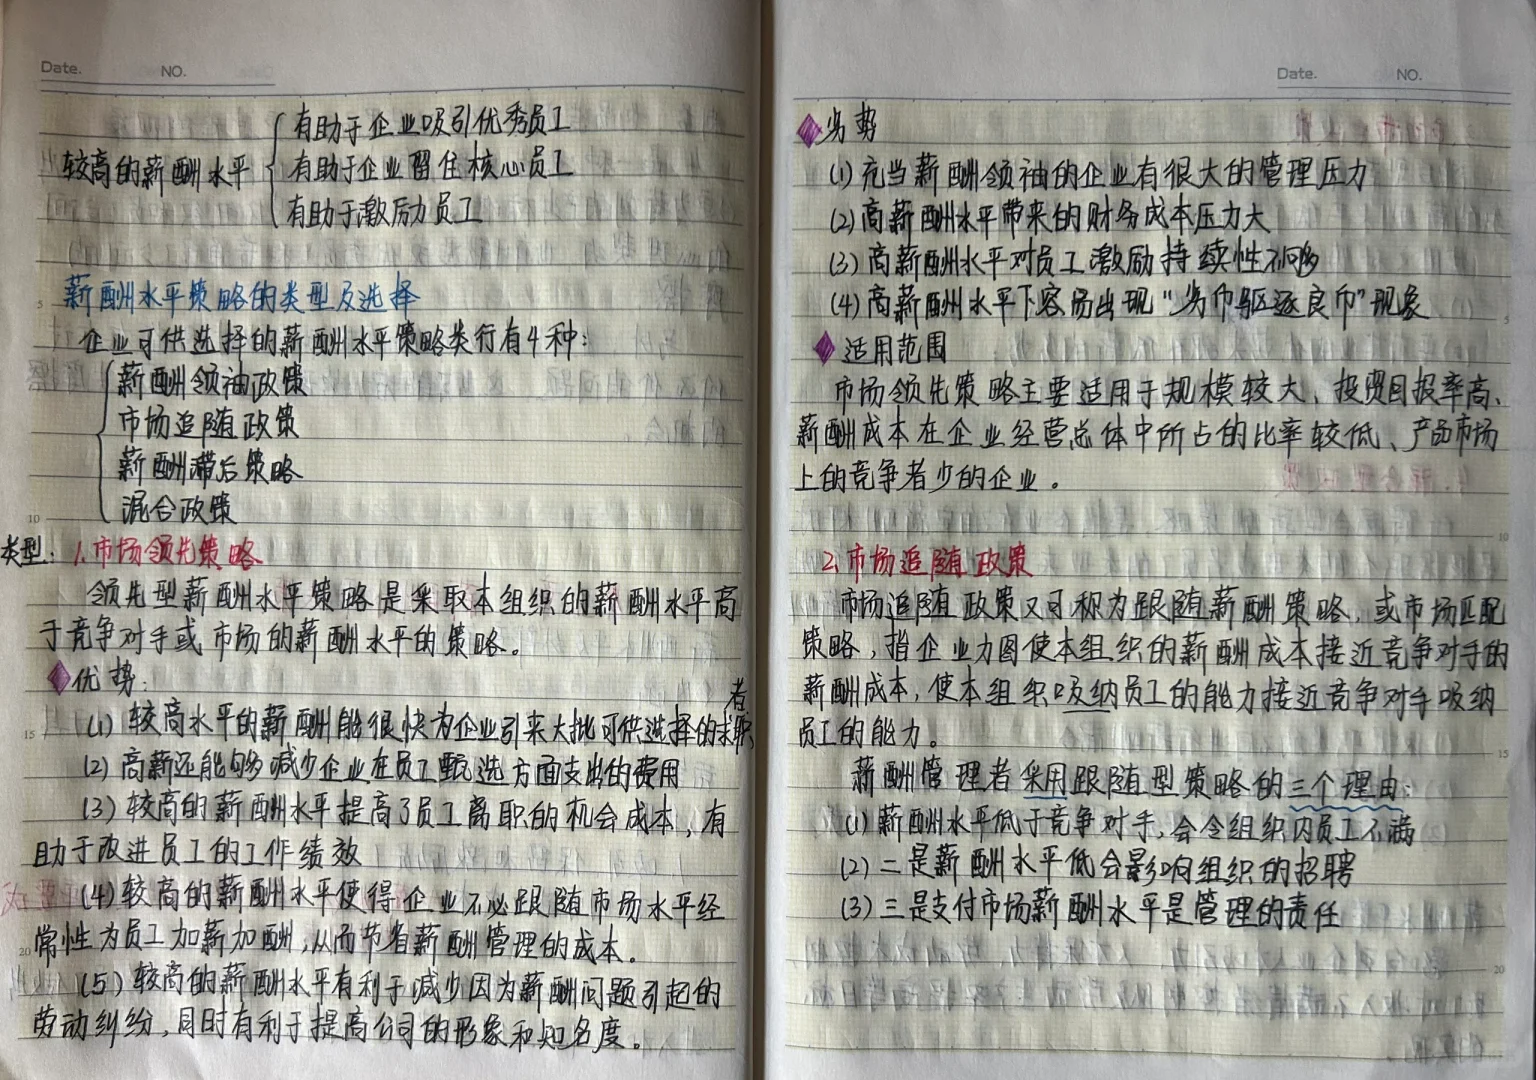 Date.
NO.
较高的薪酬水平
有助于企业吸引优秀员工
有助于企业留住核心员工
有助于激励员工
薪酬水平策略的类型及选择
企业可供选择的薪酬水平策略类行有4种：
薪酬领袖政策
市场追随政策
薪酬滞后策略
混合政策
类型：1.市场领先策略
领先型薪酬水平策略是采取本组织的薪酬水平高
于竞争对手或市场的薪酬水平的策略。
优势：
(1) 较高水平的薪酬能很快为企业引来大批可供选择的求职者
(2) 高薪还能够减少企业在员工甄选方面支出的费用
(3) 较高的薪酬水平提高了员工离职的机会成本，有
助于改进员工的工作绩效
(4) 较高的薪酬水平使得企业不必跟随市场水平经
常性为员工加薪加酬，从而节省薪酬管理的成本。
(5) 较高的薪酬水平有利于减少因为薪酬问题引起的
劳动纠纷，同时有利于提高公司的形象和知名度。
Date.
NO.
劣势
(1) 充当薪酬领袖的企业有很大的管理压力
(2) 高薪酬水平带来的财务成本压力大
(3) 高薪酬水平对员工激励持续性不够
(4) 高薪酬水平下容易出现“劣币驱逐良币”现象
适用范围
市场领先策略主要适用于规模较大、投资回报率高、
薪酬成本在企业经营总体中所占的比率较低、产品市场
上的竞争者少的企业。
2.市场追随政策
市场追随政策又可称为跟随薪酬策略，或市场匹配
策略，指企业力图使本组织的薪酬成本接近竞争对手的
薪酬成本，使本组织吸纳员工的能力接近竞争对手吸纳
员工的能力。
薪酬管理者采用跟随型策略的三个理由：
(1) 薪酬水平低于竞争对手，会令组织内员工不满
(2) 二是薪酬水平低会影响组织的招聘
(3) 三是支付市场薪酬水平是管理的责任